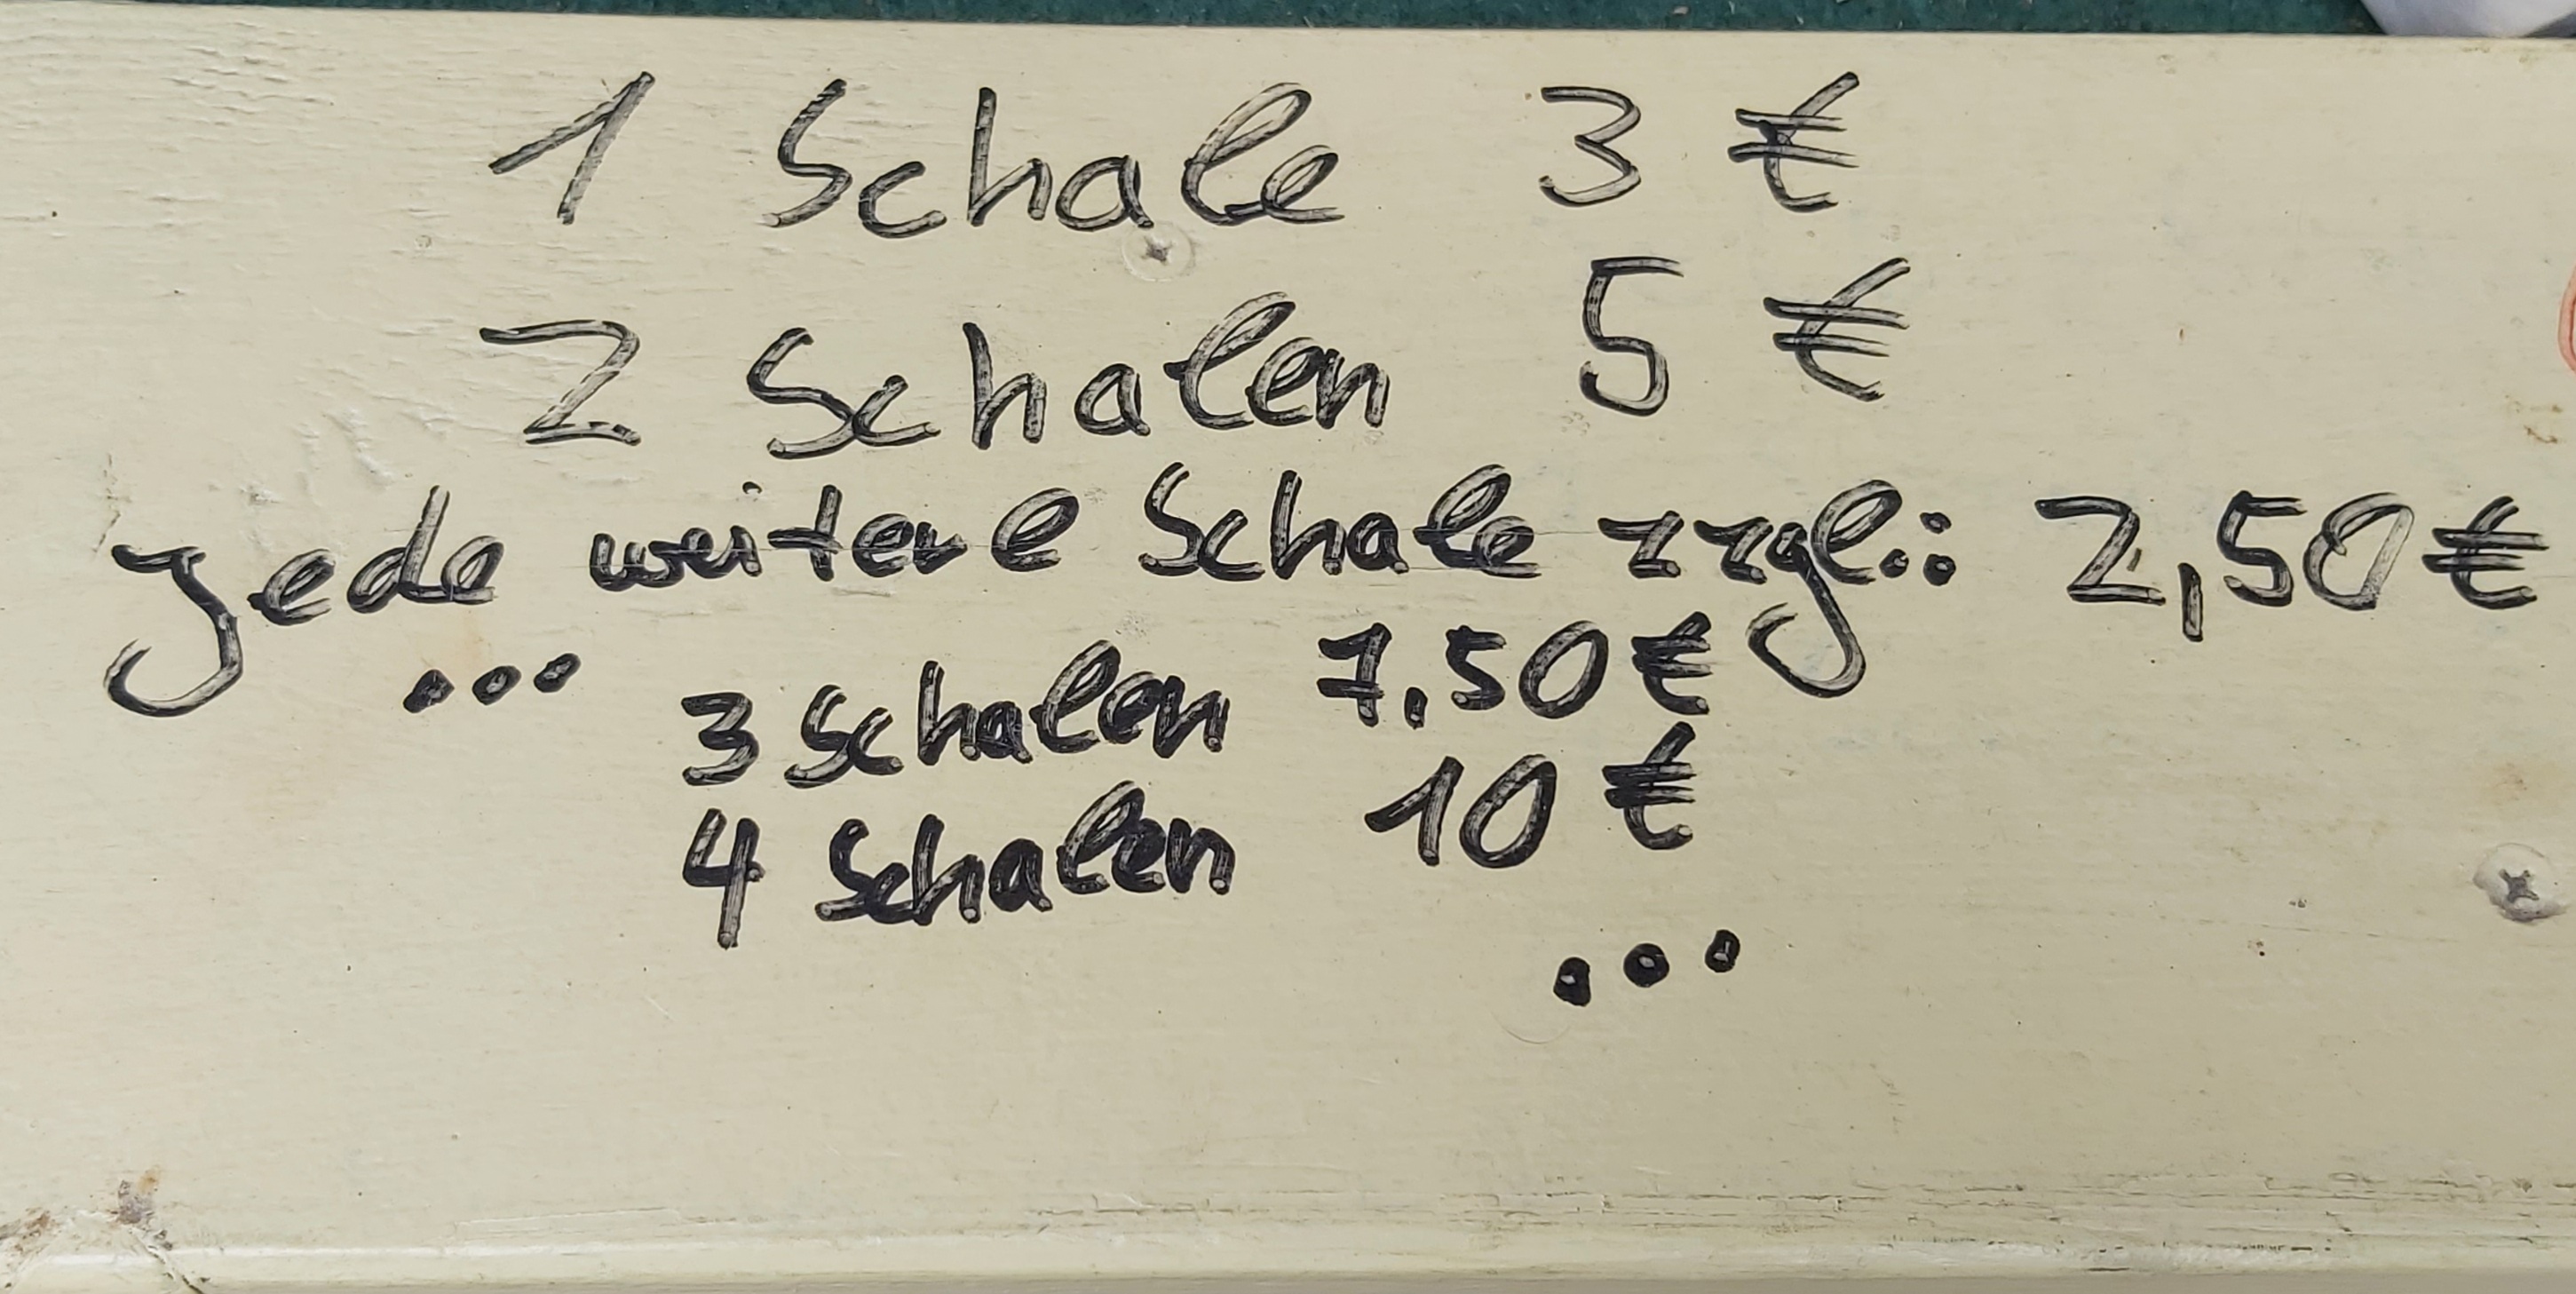 1 Schale 3 €
2 Schalen 5 €
Jede weitere Schale zzgl.: 2,50 €
... 3 Schalen 7,50 €
4 Schalen 10 €
...